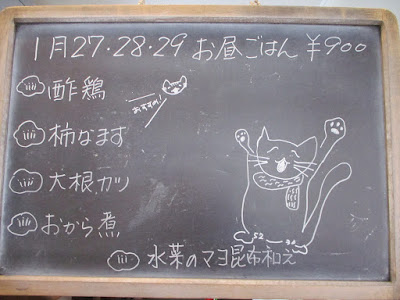 1月27・28・29 お昼ごはん ¥900
酢鶏
おすすめ!
柿なます
大根カツ
おから煮
水菜のマヨ昆布和え